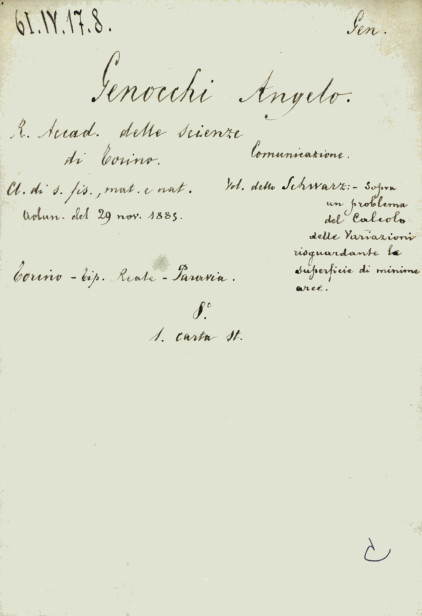 61.IV.17.8.
Gen.
Genocchi Angelo.
R. Accad. delle scienze
di Torino.
Cl. di s. fis., mat. e nat.
Adun. del 29 nov. 1885.
Comunicazione.
Vol. dello Schwarz: - Sopra
un problema
del Calcolo
delle Variazioni
risguardante le
superficie di minime
aree.
Torino - Tip. Reale - Paravia.
8.°
1. carta st.